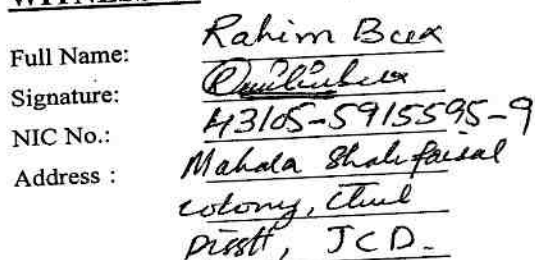 WITNESS
Full Name: Rahim Bux
Signature:
NIC No.: 43105-5915595-9
Address : Mahala Shah faisal
colony,
Disst, JCD.